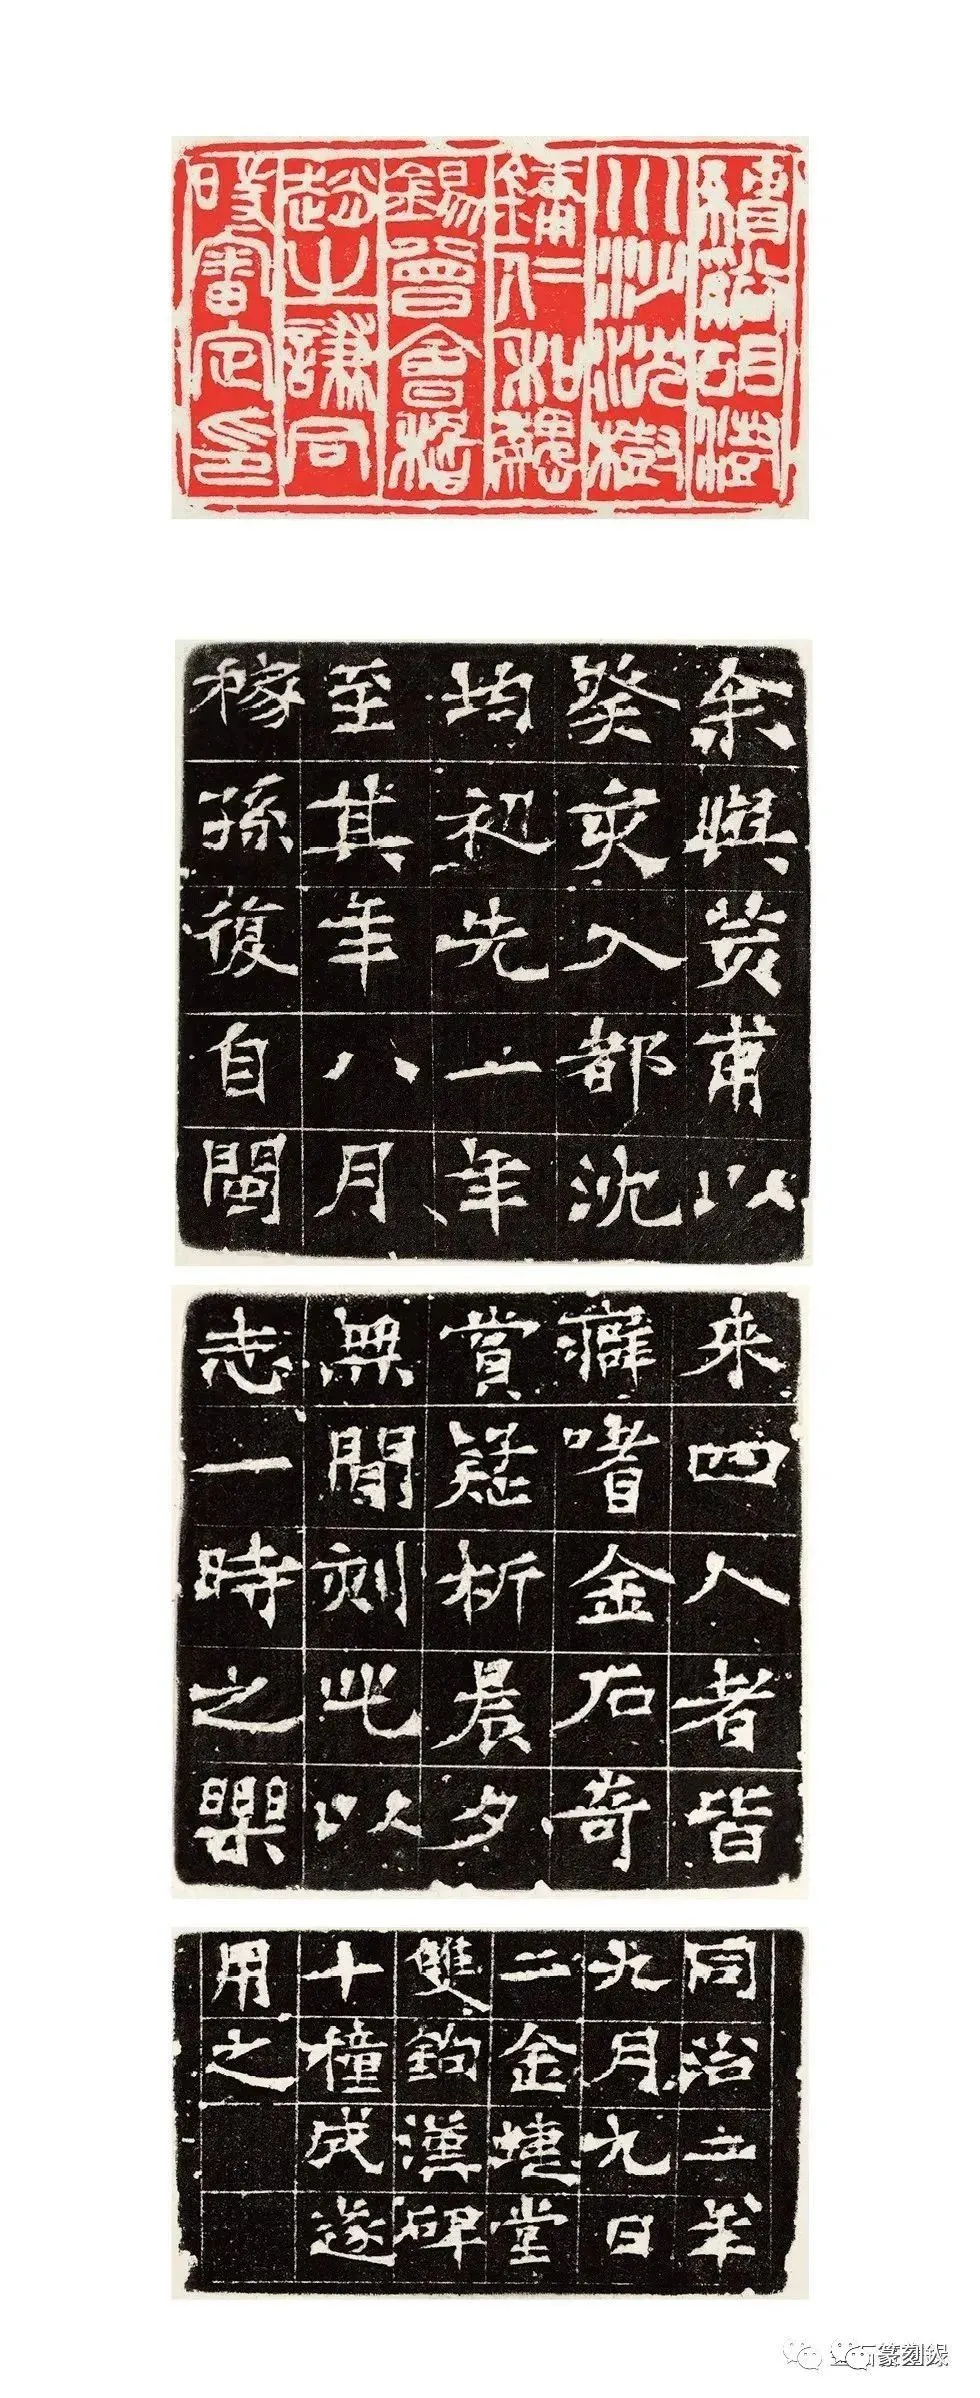 績谿胡澍
川沙沈樹
鏞仁和魏
錫曾會稽
趙之謙同
時審定印
余與荄甫以
癸亥入都沈
均初先一年
至其年八月
稼孫復自閩
来四人者皆
癖嗜金石奇
賞疑析晨夕
無閒刻此以
志一時之樂
同治二年
九月九日
二金蜨堂
雙鉤漢碑
十穜成遂
用之
金石篆刻録